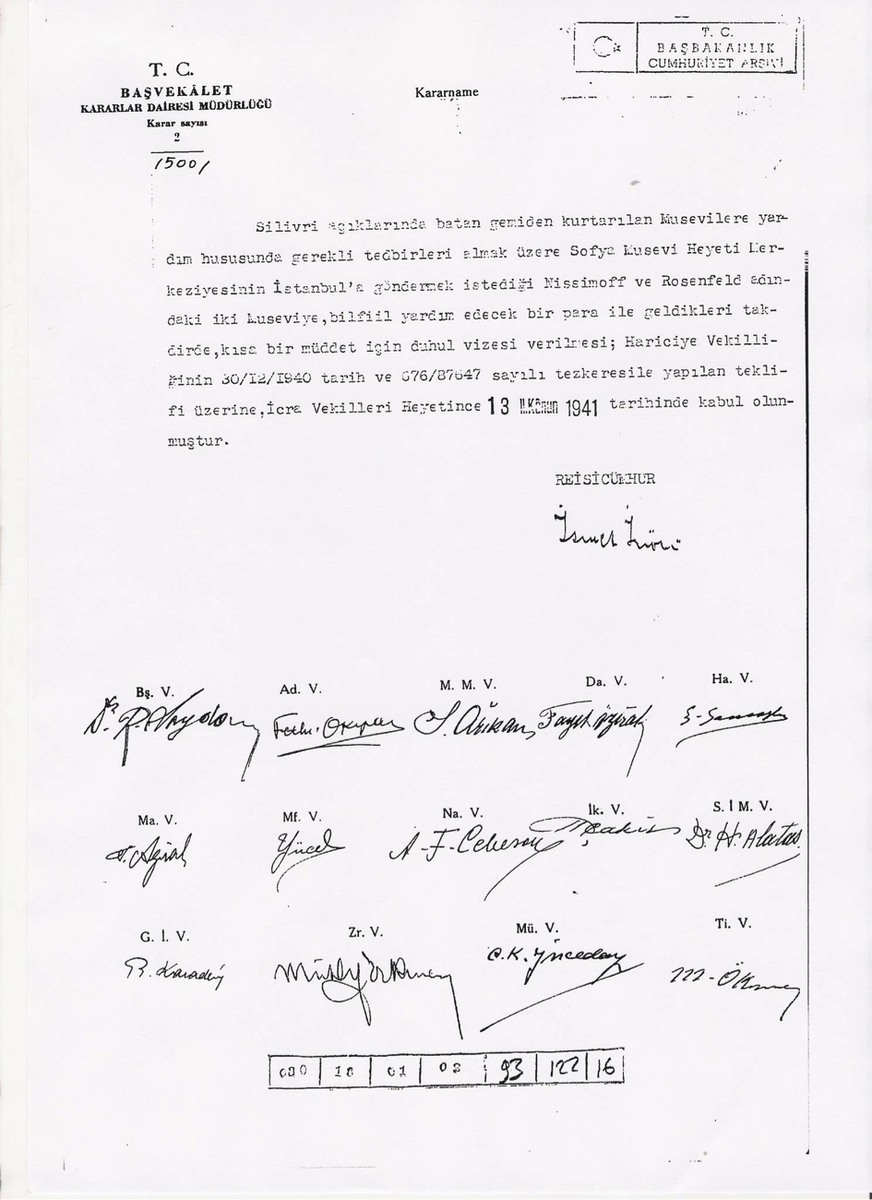 T. C.
BAŞBAKANLIK
CUMHURİYET ARŞİVİ
T. C.
BAŞVEKÂLET
KARARLAR DAİRESİ MÜDÜRLÜĞÜ
Karar sayısı
2
15001
Kararname
Silivri açıklarında batan gemiden kurtarılan Musevilere yar-
dım hususunda gerekli tedbirleri almak üzere Sofya Musevi Heyeti Mer-
keziyesinin İstanbul'a göndermek istediği Nissimoff ve Rosenfeld adın-
daki iki Museviye,bilfiil yardım edecek bir para ile geldikleri tak-
dirde,kısa bir müddet için duhul vizesi verilmesi; Hariciye Vekilli-
ğinin 30/12/1940 tarih ve 676/87647 sayılı tezkeresile yapılan tekli-
fi üzerine,İcra Vekilleri Heyetince 13 1941 tarihinde kabul olun-
muştur.
REİSİCÜMHUR
İsmet İnönü
Bş. V. Ad. V. M. M. V. Da. V. Ha. V.
Dr. R. Saydam Fethi Okyar S. Arıkan Fayık Öztrak
Ma. V. Mf. V. Na. V. İk. V. S. İ M. V.
F. Ağralı Yücel A-F-Cebesoy Çakır Dr. H. Alataş
G. İ. V. Zr. V. Mü. V. Ti. V.
R. Karadeniz Muhlis Erkmen C.K. İncedayı M-Ökmen
030 18 01 02 93 122 16